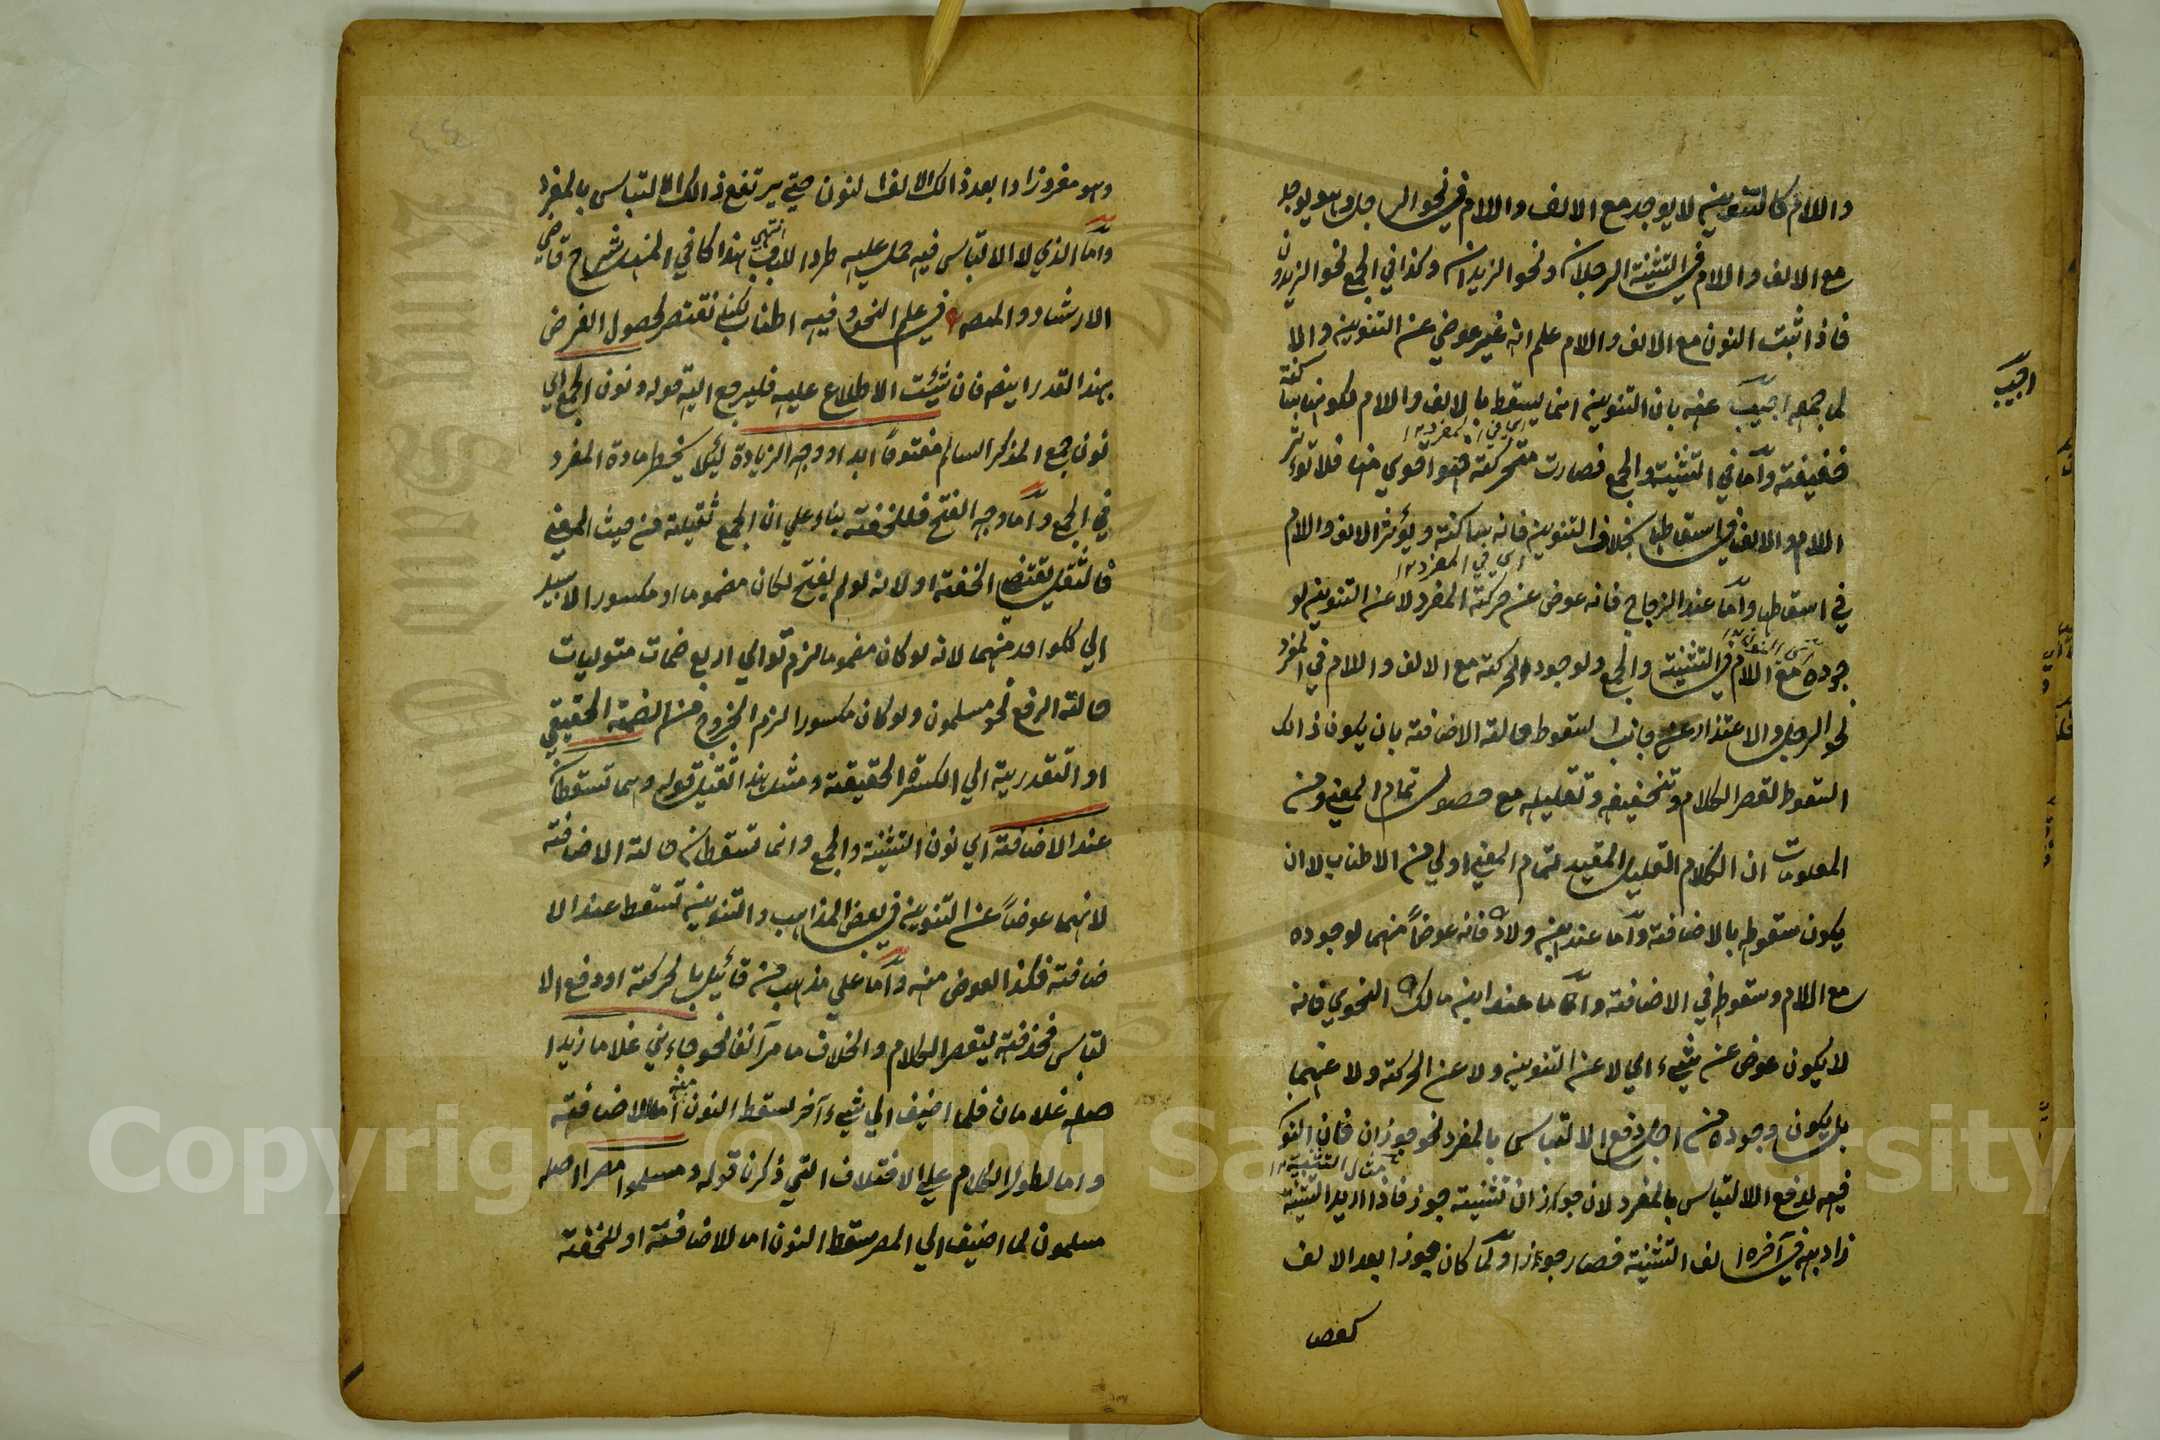 واللام كالتنوين لا يوجد مع الالف واللام في نحو الرجل وهو يوجد
مع الالف واللام في التثنية الرجلان ونحو الزيدان وكذا في الجمع نحو الزيدون
فاذا ثبت النون مع الالف واللام علم انه غير عوض عن التنوين والا
لم يجمع اجيب عنه بان التنوين انما يسقط بالالف واللام لكونها ساكنة
اي في المفرد ١٢
ضعيفة وأما في التثنية والجمع فصارت متحركة فهو اقوي منها فلا تؤثر
اللام والالف في اسقاطها بخلاف التنوين فانه ساكنة ويؤثر الالف واللام
اي في المفرد ١٢
في اسقاطها وأما عند الزجاج فانه عوض عن حركته المفرد لا عن التنوين لو
اي النون ١٢
جوده مع اللام في التثنية والجمع ولوجود الحركة مع الالف واللام في المفرد
نحو الرجل والاعتذار عن جانب السقوط حالة الاضافة بان يكون ذالك
السقوط لقصر الكلام وتخفيفه وتقليله مع حصول تمام المعني ومن
المعلومات ان الكلام القليل المقيد لتمام المعني اولي من الاطناب لا ان
يكون سقوطه بالاضافة وأما عند ابن ولاد فانه عوضاً منهما لوجوده
مع اللام وسقوطه في الاضافة وأما ما عند ابن مالك النحوي فانه
لا يكون عوض عن شيء اي لا عن التنوين ولا عن الحركة ولا عنهما
بل يكون وجوده من اجل دفع الالتباس بالمفرد نحو جوزان فان النو
مثال التثنية ١٢
فيه لدفع الالتباس بالمفرد لان جوزان تثنيته جوز فاذا اريد التثنية
زاد به في آخره الف التثنية فصار جوزا ولما كان جوزا بعد الالف
اجيب
وهو مفرد زادا بعد ذالك الالف النون حتي يرتفع ذالك الالتباس بالمفرد
وأما الذي لا الالتباس فيه حمل عليه طردا للباب انتهي هذا كما في المنهل شرح قاضي
الارشاد والمصه في علم النحو وفيه اطناب لكنا نقتصر لحصول الغرض
بهذا القدر ايضه فان شئت الاطلاع عليه فليرجع اليه قوله ونون الجمع اي
نون جمع المذكر السالم مفتوحاً ابدا ووجه الزيادة ليئلا يختط مادة المفرد
في الجمع وأما وجه الفتح فللخفة بناء علي ان الجمع ثقيلة من حيث المعني
فالثقيل يقتضي الخفة او لانه لو لم يفتح لكان مضموما او مكسورا لا سبيل
الي كلواحد منهما لانه لو كان مضموما لزم توالي اربع ضمات متوليات
حالة الرفع نحو مسلمون ولو كان مكسورا لزم الخروج من الضمة الحقيقي
او التقديرية الي الكسرة الحقيقة ومثل هذا ثقيل قوله وهما تسقطان
عند الاضافة اي نون التثنية والجمع وانما تسقطان حالة الاضافة
لانهما عوضاً عن التنوين في بعض المذاهب والتنوين تسقط عند الا
ضافة فكذا العوض منه وأما علي مذهب من قائل بالحركة او دفع الا
لتباس فحذفته ليقصر الكلام والخلاف ما مر آنفا نحو جاءني غلاما زيد ا
صله غلامان فلما اضيف الي شيء آخر سقط النون منه اما للاضافة
واما لطول الكلام علي الاختلاف التي ذكرنا قوله ومسلموا مصر اصله
مسلمون لما اضيف الي المصر سقط النون اما للاضافة او للخفة